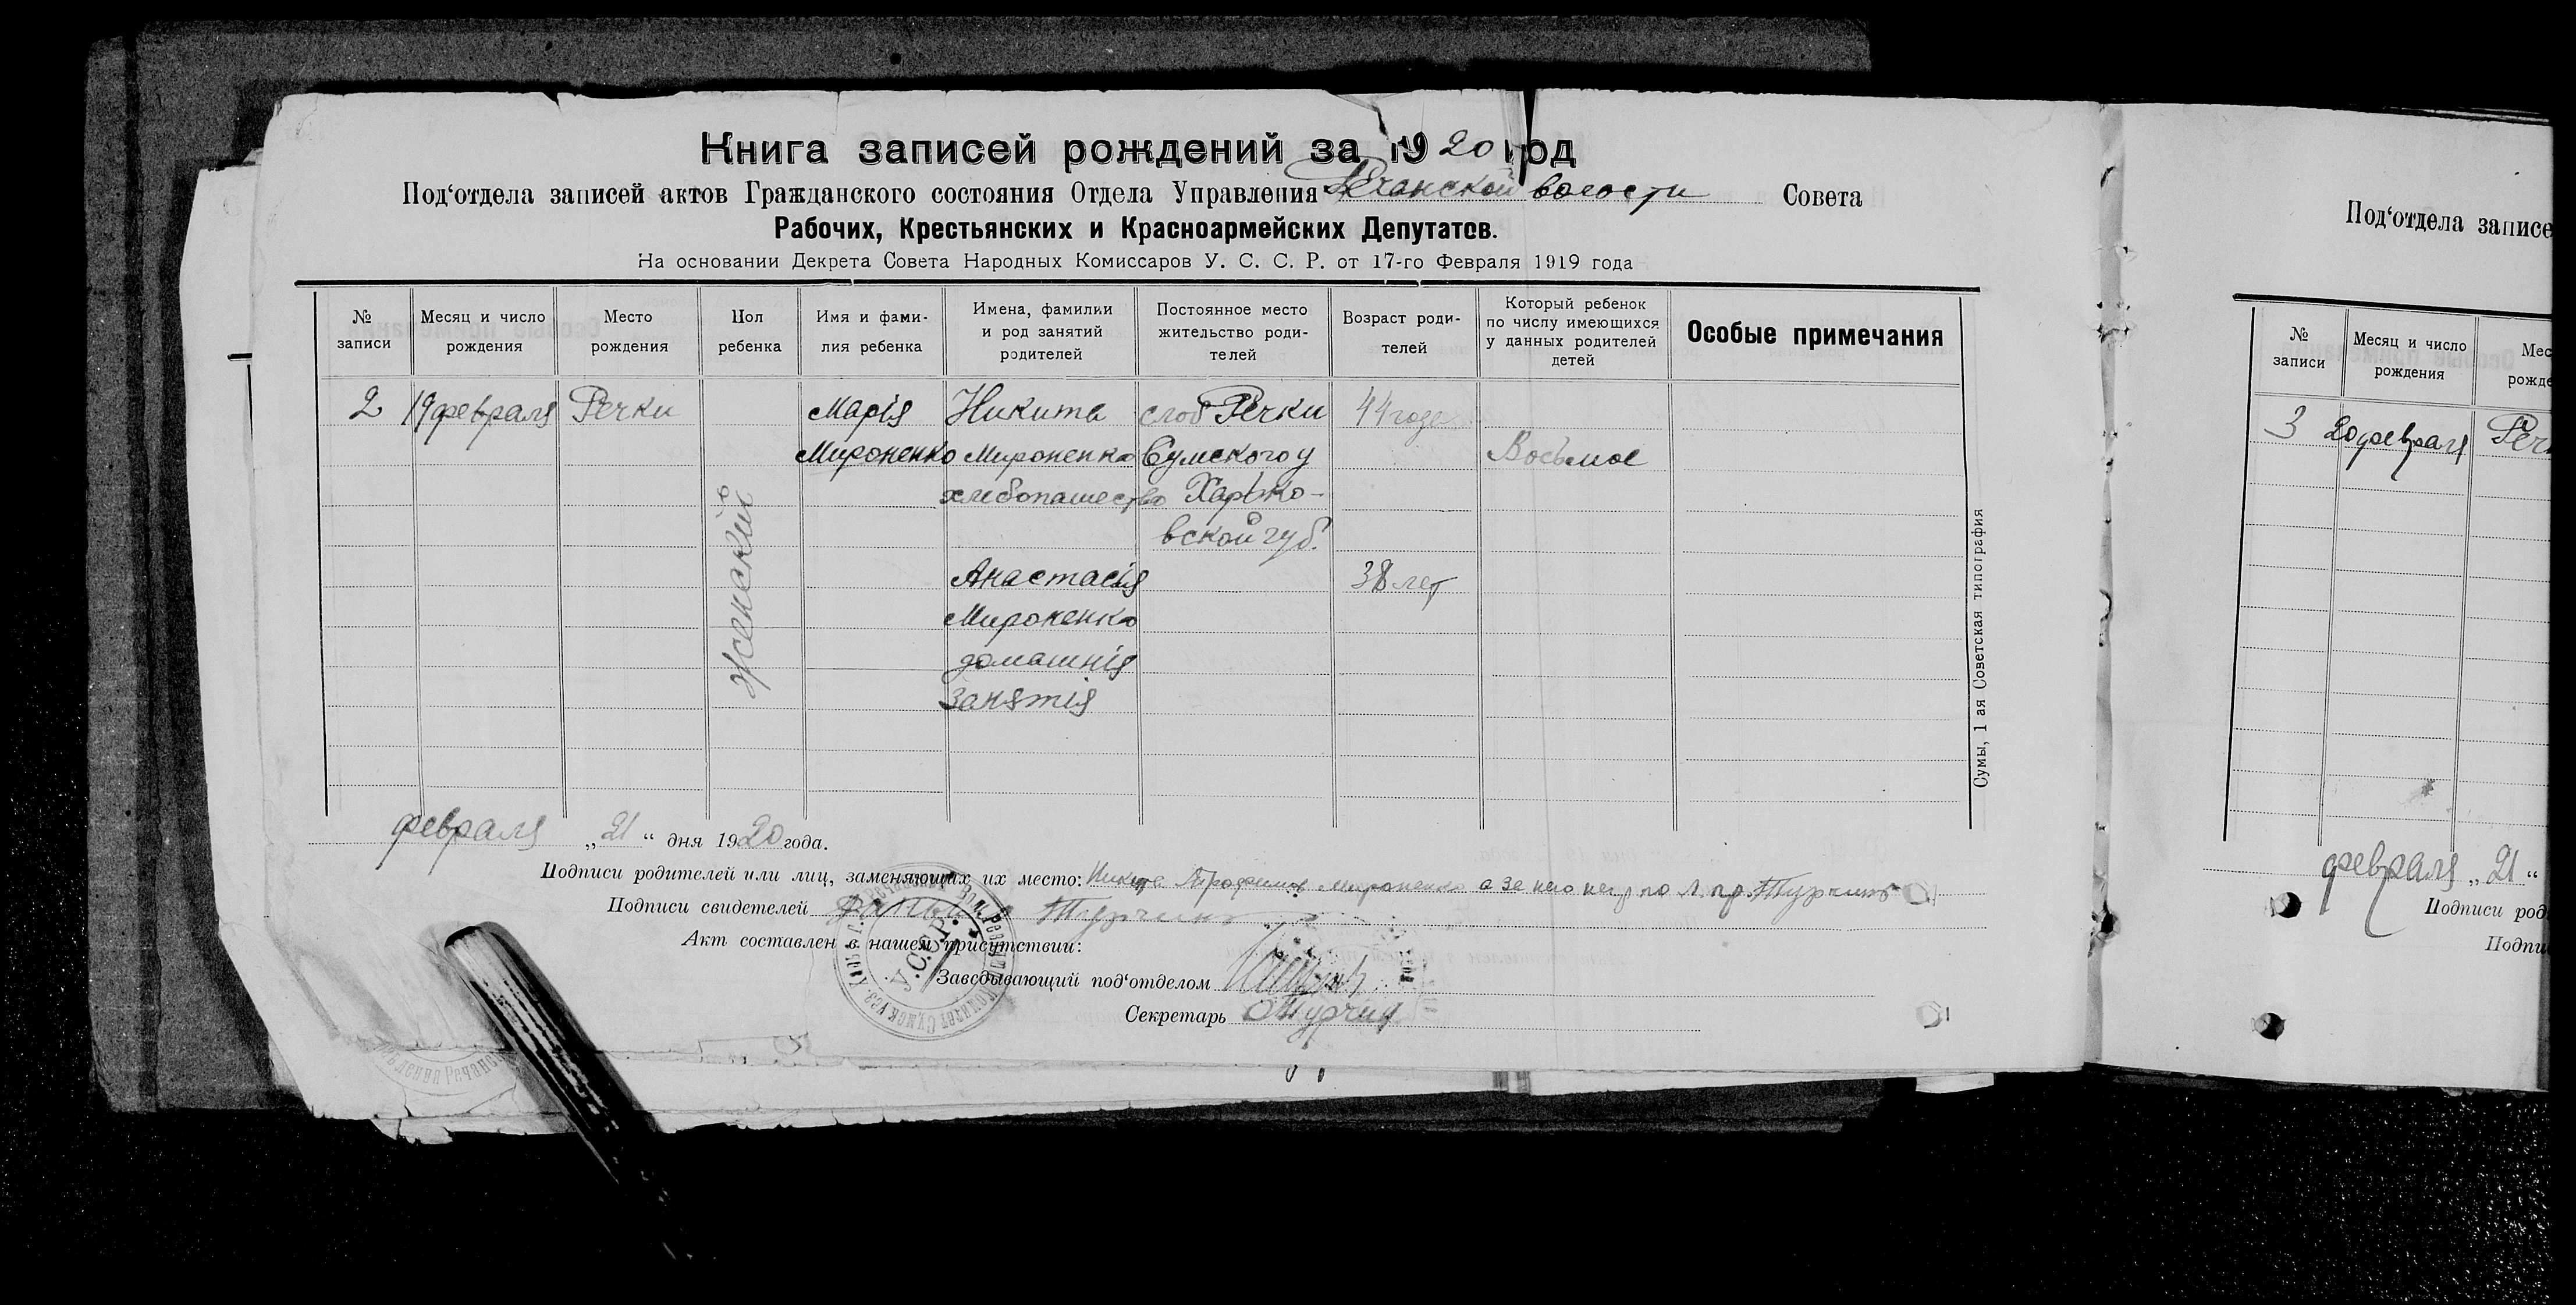 Книга записей рождений за 1920 год
Под‘отдела записей актов Гражданского состояния Отдела Управления Речанской волости Совета
Рабочих, Крестьянских и Красноармейских Депутатов.
На основании Декрета Совета Народных Комиссаров У. С. С. Р. от 17-го Февраля 1919 года
№ записи
Месяц и число рождения
Место рождения
Пол ребенка
Имя и фами-
лия ребенка
Имена, фамилии
и род занятий
родителей
Постоянное место
жительство роди-
телей
Возраст роди-
телей
Который ребенок
по числу имеющихся
у данных родителей
детей
Особые примечания
2 19 февраля Речки Марія Никита слоб Речки 44 года
Мироненко Мироненко Сумского у Восьмое
хлебопашество Харько-
вской губ.
женский
Анастасія 38 лет
Мироненко
домашнія
занятія
Сумы, 1 ая Советская типография
февраля „21“ дня 1920 года.
Подписи родителей или лиц, заменяющих их место: Никита Трофимов Мироненко а за него негр по л. пр. Турчинъ
Подписи свидетелей Турчинъ
Акт составлен в нашем присутствии:
Заведывающий под‘отделом
Секретарь Турчин
У.С.С.Р.
Под‘отдела записе
№ записи
Месяц и число рождения
Мес
рожде
3 20 февраля Реч
февраля „21“
Подписи род
Подпи